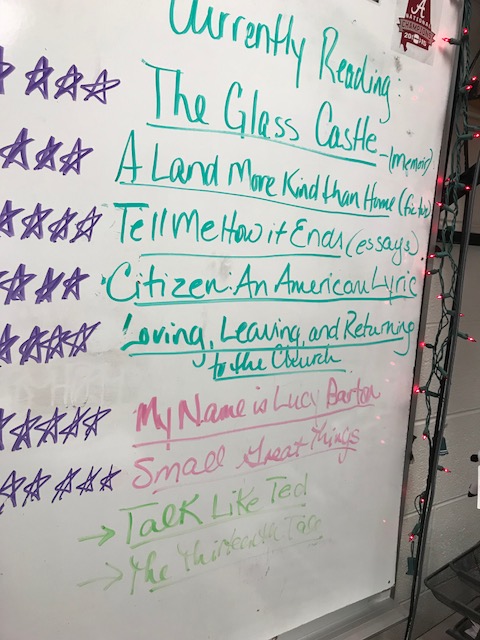 Currently Reading:
The Glass Castle - (memoir)
A Land More Kind than Home (fiction)
Tell Me How it Ends (essays)
Citizen: An American Lyric
Loving, Leaving, and Returning
to the Church
My Name is Lucy Barton
Small Great Things
→ Talk Like Ted
→ The Thirteenth Tale
A
NATIONAL
CHAMPIONS